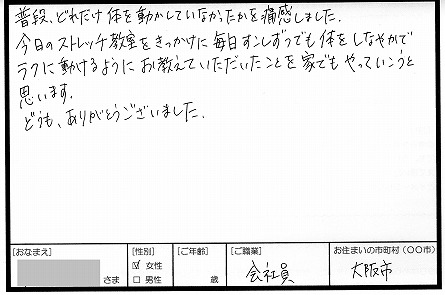 普段、どれだけ体を動かしていなかったかを痛感しました.
今日のストレッチ教室をきっかけに毎日すこしずつでも体をしなやかで
ラクに動けるようにお教えていただいたことを家でもやっていこうと
思います.
どうも、ありがとうございました.
[おなまえ] [性別] [ご年齢] [ご職業] お住まいの市町村(〇〇市)
さま ☑ 女性 □ 男性 歳 会社員 大阪市